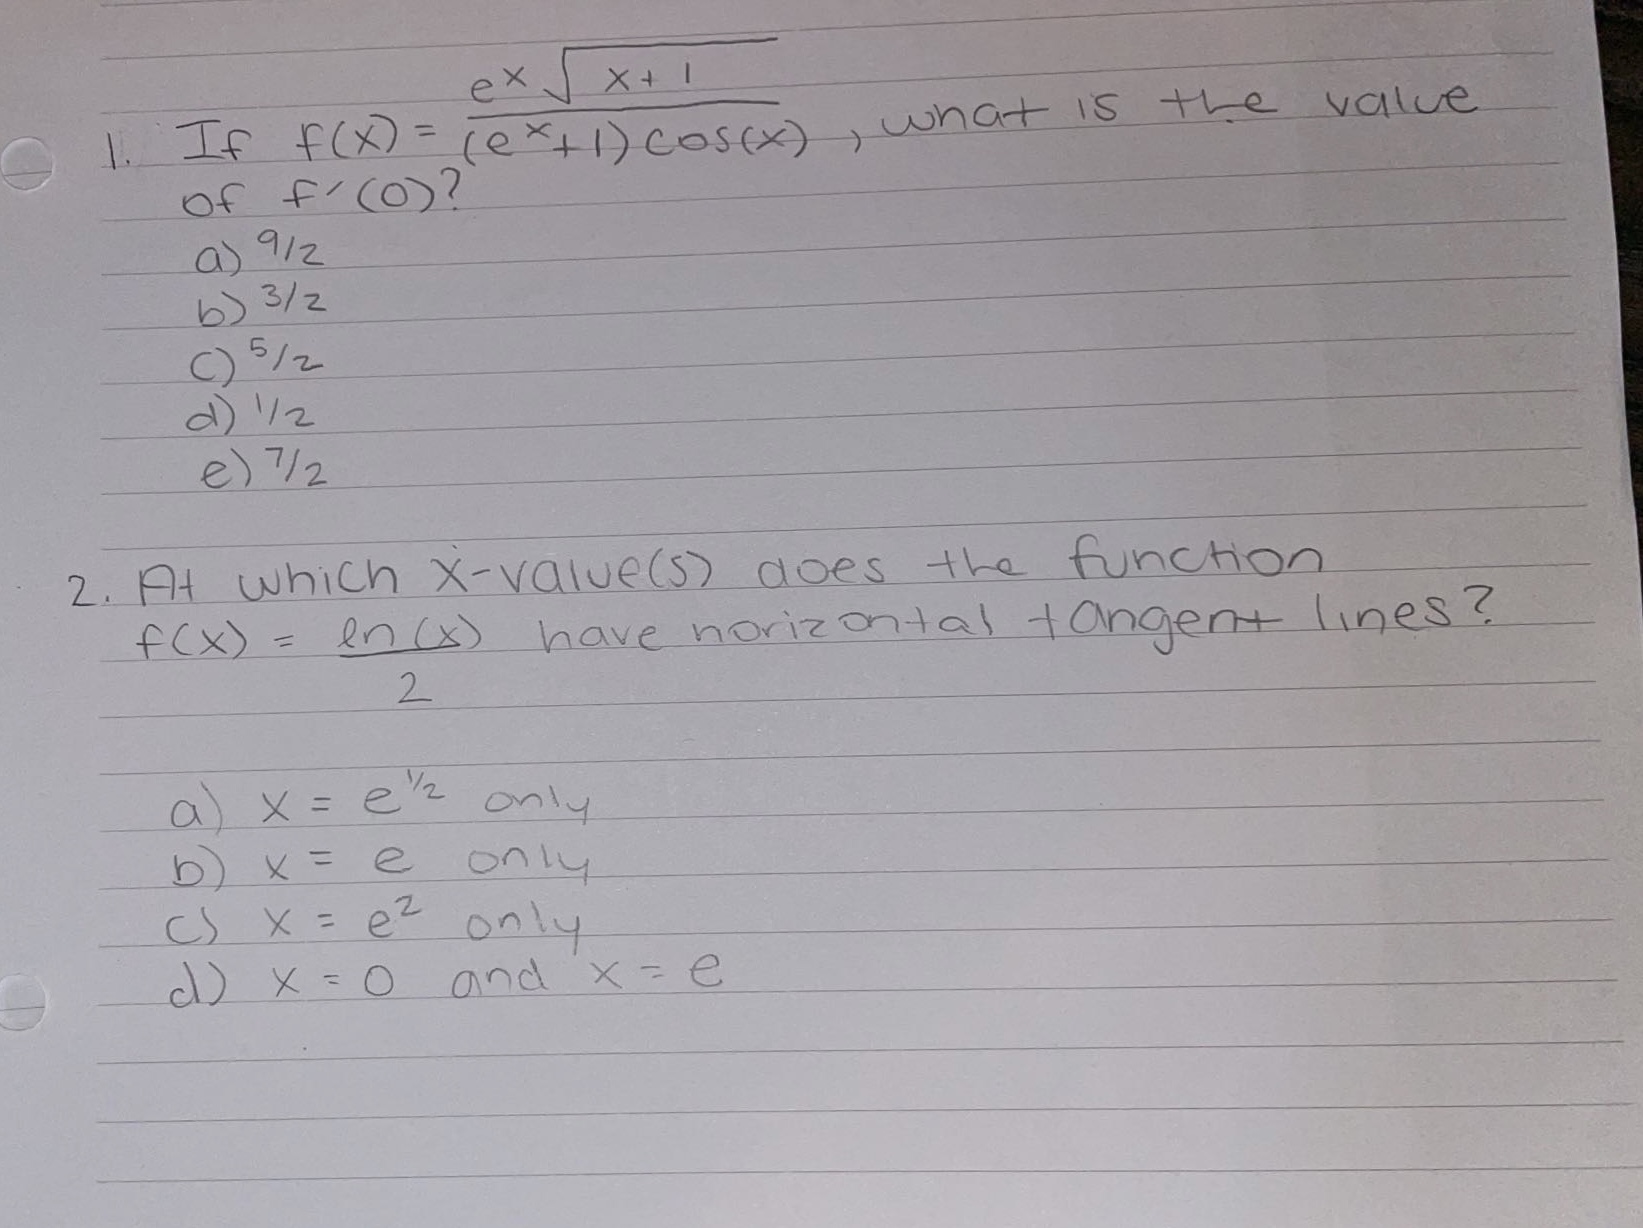 e^x √(x+1)
1. If f(x) = (e^x+1) cos(x) , what is the value
of f'(0)?
a) 9/2
b) 3/2
c) 5/2
d) 1/2
e) 7/2
2. At which x-value(s) does the function
f(x) = ln(x) have horizontal tangent lines?
2
a) x = e^1/2 only
b) x = e only
c) x = e^2 only
d) x = 0 and x = e